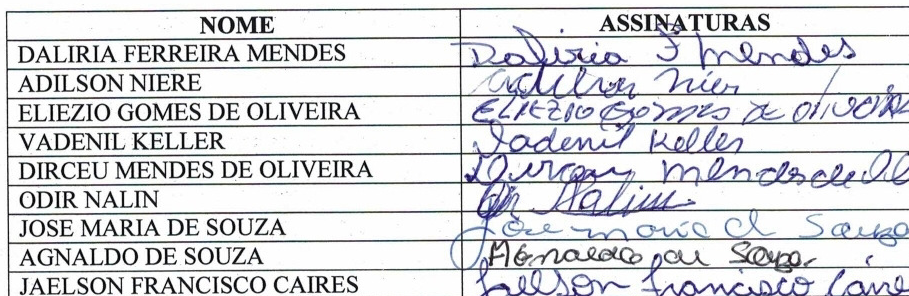 NOME ASSINATURAS
DALIRIA FERREIRA MENDES Daliria F Mendes
ADILSON NIERE Adilson Nier
ELIEZIO GOMES DE OLIVEIRA ELIEZIO GOMES DE OLIVEIRA
VADENIL KELLER Vadenil Keller
DIRCEU MENDES DE OLIVEIRA Dirceu Mendes de
ODIR NALIN Nalin
JOSE MARIA DE SOUZA Jose maria d Souza
AGNALDO DE SOUZA Agnaldo de Souza
JAELSON FRANCISCO CAIRES Francisco